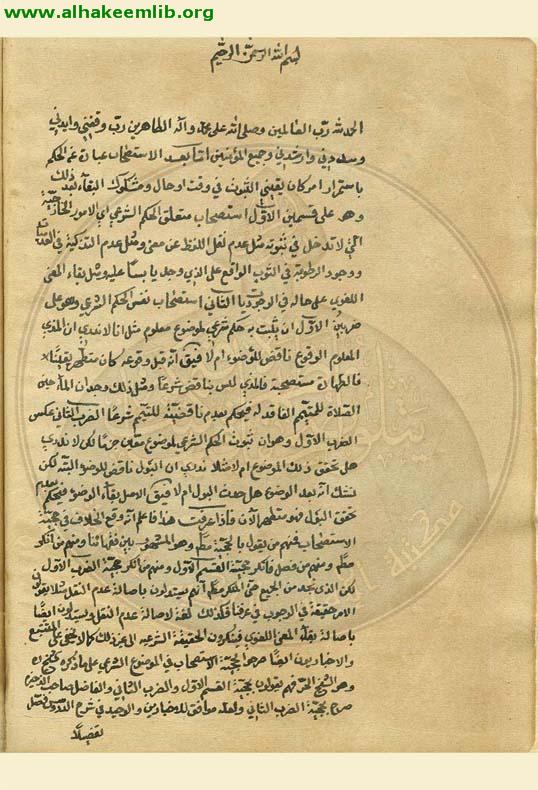 www.alhakeemlib.org
بسم الله الرحمن الرحيم
الحمد لله رب العالمين وصلى الله على محمد وآله الطاهرين رب وفقني وايدني
وسددني وارشدني وجميع المؤمنين اما بعد الاستصحاب عبارة عن الحكم
باستمرار امر كان يقيني الثبوت في وقت او حال ومشكوك البقاء بعد ذلك
وهو على قسمين الاول استصحاب متعلق الحكم الشرعي اي الامور الخارجية
التي لا تدخل في ثبوته مثل عدم نقل اللفظ عن معنى ومثل عدم التذكية في
ووجود الرطوبة في الثوب الواقع على الذي وجد يابسا عليه ومثل بقاء المعنى
اللغوي على حاله في الثاني استصحاب نفس الحكم الشرعي وهو على
ضربين الاول ان يثبت به حكم شرعي لموضوع معلوم مثل انا لا ندري ان المذي
المعلوم الوقوع ناقض للوضوء ام لا فيق انه قبل وقوعه كان متطهرا يقينا
فالطهارة مستصحبة فالمذي ليس بناقض شرعا ومثل ذلك وجدان الماء حين
الصلاة للمتيمم الفاقد له فيحكم بعدم ناقضيته للتيمم شرعا الضرب الثاني عكس
الضرب الاول وهو ان ثبوت الحكم الشرعي لموضوع معين جزما لكن لا ندري
هل تحقق ذلك الموضوع ام لا مثلا ندري ان البول ناقض للوضوء البتة لكن
نشك انه بعد الوضوء هل حدث البول ام لا فيق الاصل بقاء الوضوء فيحكم بعدم
تحقق البول فهو متطهر الآن فاذا عرفت هذا فاعلم انه وقع الخلاف في حجية
الاستصحاب فمنهم من يقول بالحجية مطم وهو المشهور بين فقهائنا ومنهم من انكر
مطم ومنهم من فصل فانكر حجية القسم الاول ومنهم من انكر حجية الضرب الاول
لكن الذي نجد من الجميع حتى المنكر مطم انهم يستدلون باصالة عدم النقل مثلا يقولون
الامر حقيقة في الوجوب في عرفنا فكذلك لغة لاصالة عدم النقل ويستدلون ايضا
باصالة بقاء المعنى اللغوي فينكرون الحقيقة الشرعية الى غير ذلك كما لا يخفى على المتتبع
والاخباريون ايضا صرحوا بحجية الاستصحاب في الموضوع الشرعي على ما ذكره
وهو الشيخ الحر فهم يقولون بحجية القسم الاول والضرب الثاني والفاضل صاحب الذخيرة
صرح بحجية الضرب الثاني ولعله موافق للاخباريين والوحيد في شرح الدروس فصل
تفصيلا